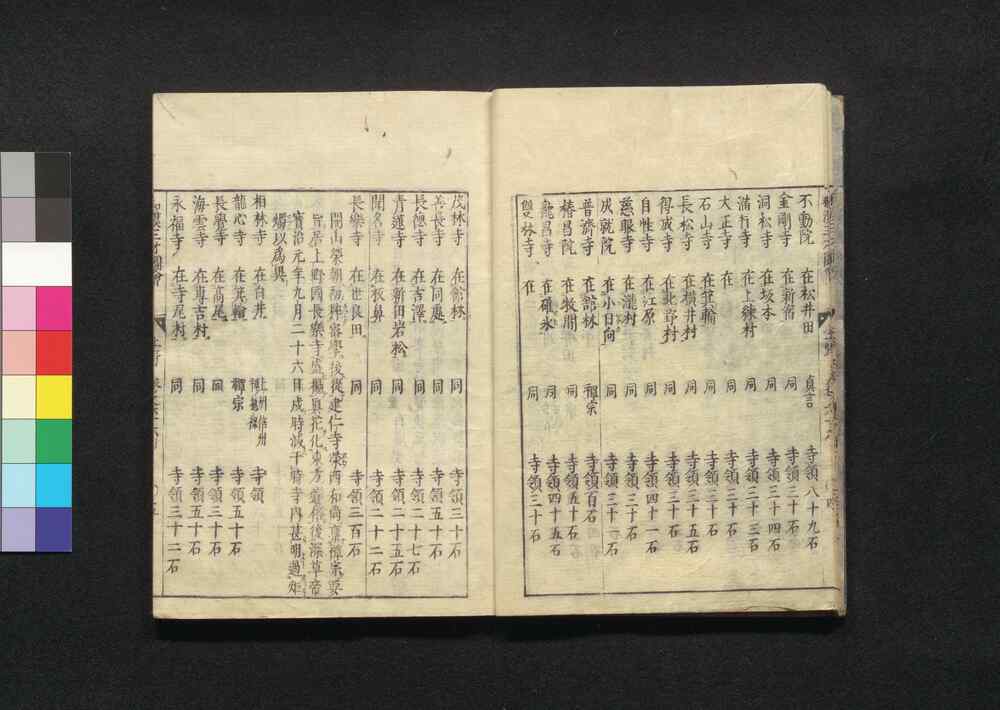 不動院 在松井田 真言 寺領八十九石
金剛寺 在新宿 同 寺領三十石
洞松寺 在坂本 同 寺領三十四石
満行寺 在上 村 同 寺領三十三石
大正寺 在 同 寺領三十石
石山寺 在箕輪 同 寺領三十石
長松寺 在横井村 同 寺領三十五石
得成寺 在北 村 同 寺領三十石
自性寺 在江原 同 寺領四十一石
慈眼寺 在瀧村 同 寺領三十石
成就院 在小日向 同 寺領三十 石
普濟寺 在館林 禪宗 寺領百石
椿昌院 在牧間 同 寺領五十石
龍昌寺 在碓氷 同 寺領四十五石
雙林寺 在 同 寺領三十石
茂林寺 在館林 同 寺領三十石
善長寺 在同處 同 寺領五十石
長德寺 在吉澤 同 寺領二十七石
青蓮寺 在新田岩松 同 寺領二十五石
聞名寺 在板鼻 同 寺領二十二石
長樂寺 在世良田 同 寺領三百石
開山榮朝 後從建仁寺榮西和尚 禪宗
旨居上野國長樂寺盛 化東方 後深草帝
寶治元年九月二十六日戌時滅 時寺内甚明過
以為異
相林寺 在白井 寺領
龍心寺 在箕輪 禪宗 寺領五十石
長學寺 在高尾 同 寺領三十石
海雲寺 在専吉村 同 寺領五十石
永福寺 在寺尾村 同 寺領三十二石